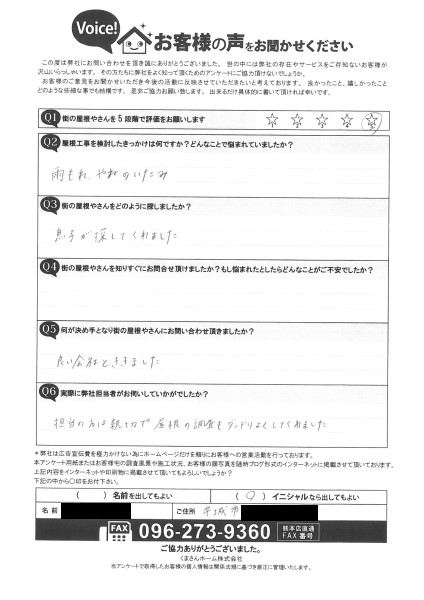 Voice!
お客様の声をお聞かせください
この度は弊社にお問い合わせを頂き誠にありがとうございました。 世の中には弊社の存在やサービスをご存知ないお客様が
沢山いらっしゃいます。 その方たちに弊社をよく知って頂くためのアンケートにご協力頂けないでしょうか。
お客様のご意見をお聞かせいただき今後の活動に反映させていただきたいと考えております。 良かったこと、嬉しかったこと
どのような些細な事でも結構です。 是非ご協力お願い致します。 出来るだけ具体的に書いて頂ければ幸いです。
Q1 街の屋根やさんを5段階で評価をお願いします ☆ ☆ ☆ ☆ ☆
Q2 屋根工事を検討したきっかけは何ですか？どんなことで悩まれていましたか？
雨もれ、やねのいたみ
Q3 街の屋根やさんをどのように探しましたか？
息子が探してくれました
Q4 街の屋根やさんを知りすぐにお問合せ頂けましたか？もし悩まれたとしたらどんなことがご不安でしたか？
Q5 何が決め手となり街の屋根やさんにお問い合わせ頂きましたか？
良い会社とききました
Q6 実際に弊社担当者がお伺いしていかがでしたか？
担当の方は親切で屋根の調査もダンドリよくしてくれました
＊弊社は広告宣伝費を極力かけない為にホームページだけを頼りにお客様への営業活動を行っております。
本アンケート用紙またはお客様宅の調査風景や施工状況、お客様の顔写真を随時ブログ形式のインターネットに掲載させて頂いております。
上記内容をインターネットや印刷物に掲載させて頂いてもよろしいでしょうか？
下記の中から〇印をお付け下さい。
（ ）名前を出してもよい （ ○ ）イニシャルなら出してもよい
名前 ご住所 宇城市
FAX 096-273-9360 熊本店直通 FAX 番号
ご協力ありがとうございました。
くまさんホーム株式会社
※アンケートで取得したお客様の個人情報は関係法規に基づき厳正に管理いたします。